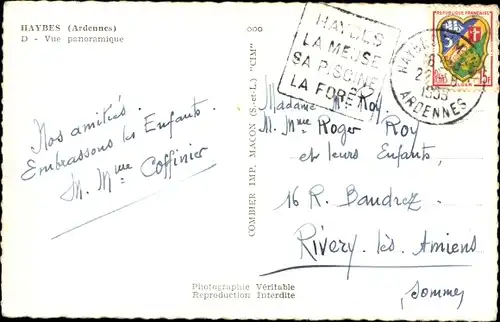 HAYBES (Ardennes)
D - Vue panoramique
Nos amitiés.
Embrassons les Enfants.
M. Mme Coffinier
COMBIER IMP. MACON (S.-et-L.) "CIM"
HAYBES
LA MEUSE
SA PISCINE
LA FORET
HAYBES
ARDENNES
REPUBLIQUE FRANÇAISE
15F
Madame M. Roy
M. Mme Roger Roy
et leurs Enfants,
16 R. Baudrez
Rivery. lès. Amiens
(Somme)
Photographie Véritable
Reproduction Interdite